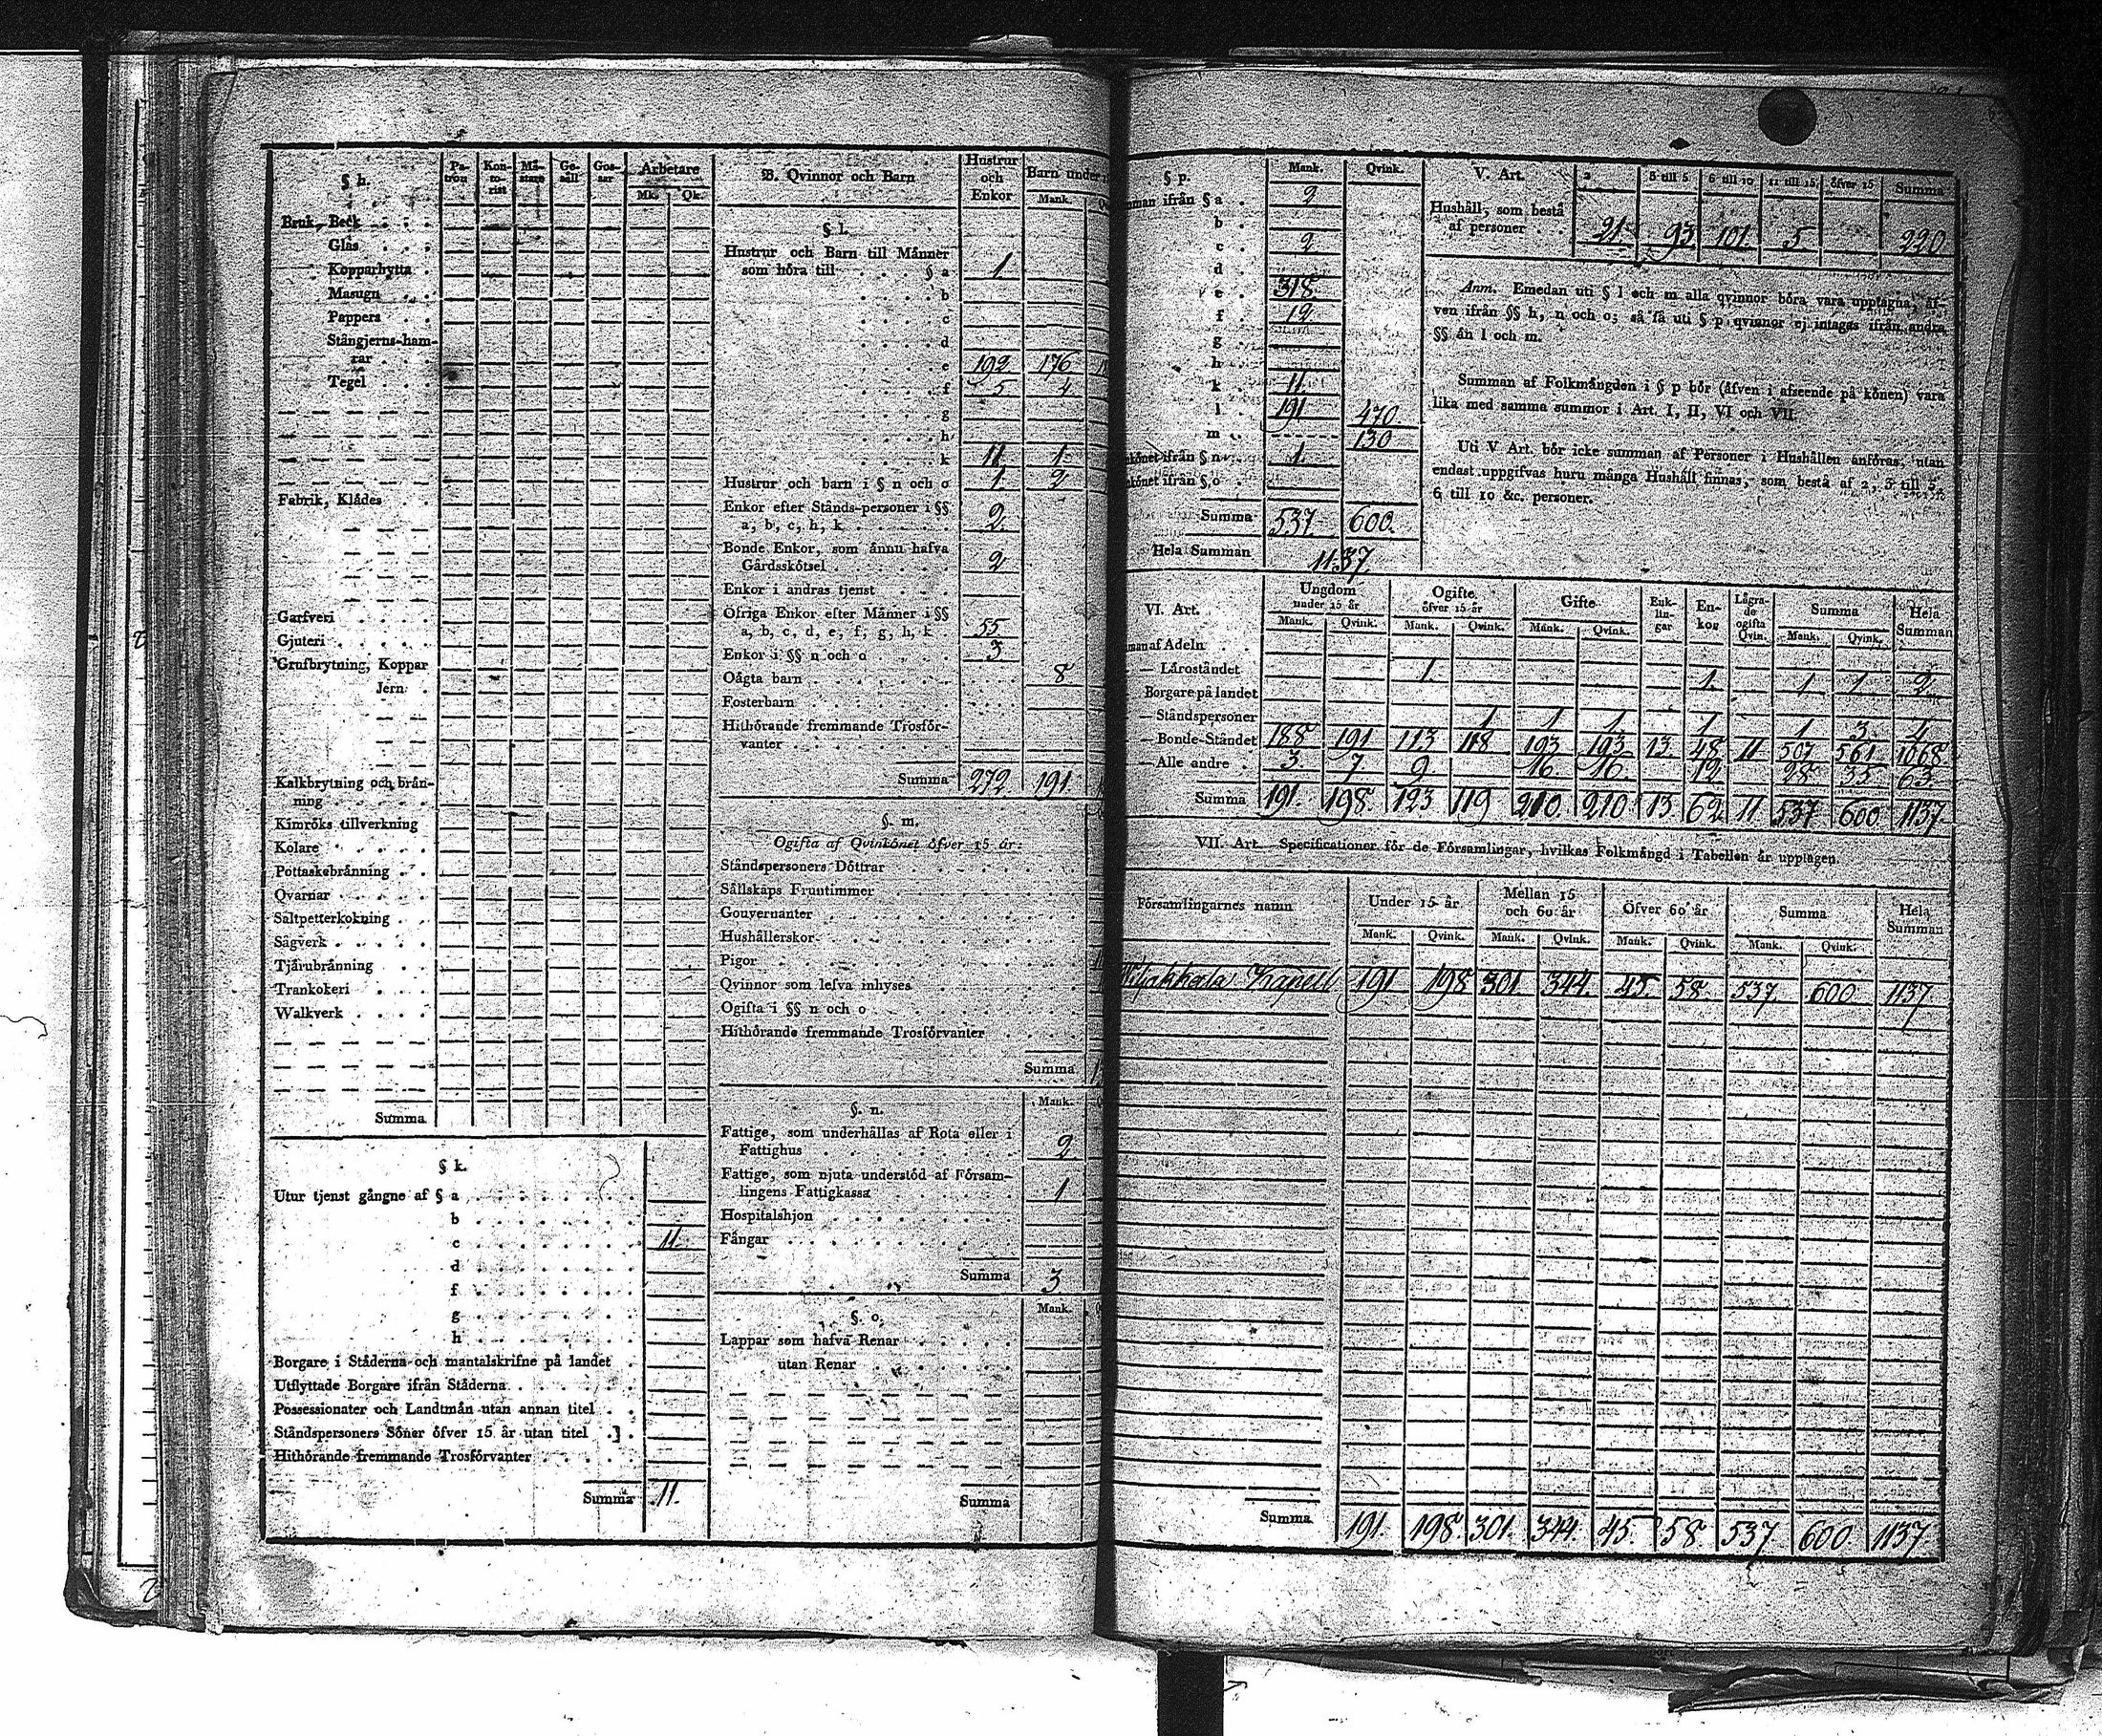 § h.
Pa-
tron
Kon-
to-
rist
Må-
stare
Ge-
säll
Gos-
sar
Arbetare
Mk. Qk.
Bruk, Beck
Glås
Kopparhytta
Masugn
Pappers
Stångjerns-ham-
rar
Tegel
Fabrik, Klådes
Garfveri
Gjuteri
Grufbrytning, Koppar
Jern
Kalkbrytning och brån-
ning
Kimröks tillverkning
Kolare
Pottaskebrånning
Qvarnar
Saltpetterkokning
Sågverk
Tjårubrånning
Trankokeri
Walkverk
Summa
§ k.
Utur tjenst gångne af § a
b
c 11.
d
f
g
h
Borgare i Ståderna och mantalskrifne på landet
Utflyttade Borgare ifrån Ståderna
Possessionater och Landtmån utan annan titel
Ståndspersoners Söner öfver 15 år utan titel
Hithörande fremmande Trosförvanter
Summa 11.
B. Qvinnor och Barn
Hustrur
och
Enkor
Barn under
Mank.
§ l.
Hustrur och Barn till Månner
som höra till § a 1
b
c
d
e 192. 176
f 5 4.
g
h
k 11 1
Hustrur och barn i § n och o 1. 2
Enkor efter Stånds-personer i §§
a, b, c, h, k 2.
Bonde Enkor, som ånnu hafva
Gårdsskötsel 2
Enkor i andras tjenst
Öfriga Enkor efter Månner i §§
a, b, c, d, e, f, g, h, k 55
Enkor i §§ n och o 3
Oågta barn 8
Fosterbarn
Hithörande fremmande Trosför-
vanter
Summa 272. 191.
§. m.
Ogifta af Qvinkönet öfver 15 år:
Ståndspersoners Döttrar
Sållskaps Fruntimmer
Gouvernanter
Hushållerskor
Pigor
Qvinnor som lefva inhyses
Ogifta i §§ n och o
Hithörande fremmande Trosförvanter
Summa
§. n.
Mank.
Fattige, som underhållas af Rota eller i
Fattighus 2
Fattige, som njuta understöd af Försam-
lingens Fattigkassa 1
Hospitalshjon
Fångar
Summa 3
§. o.
Mank.
Lappar som hafva Renar
utan Renar
Summa
§ p. Mank. Qvink.
man ifrån § a 2
b
c 2
d
e 318.
f 12
g
h
k 11.
l 191 470.
m 130
könet ifrån § n 1.
könet ifrån § o
Summa 537. 600.
Hela Summan 1137.
V. Art. 2 3 till 5 6 till 10 11 till 15 öfver 15 Summa
Hushåll, som bestå
af personer 21. 93 101. 5 220
Anm. Emedan uti § l och m alla qvinnor böra vara upptagna, åf-
ven ifrån §§ h, n och o; så få uti § p qvinnor ej intagas ifrån andra
§§ ån l och m.
Summan af Folkmångden i § p bör (åfven i afseende på könen) vara
lika med samma summor i Art. I, II, VI och VII.
Uti V Art. bör icke summan af Personer i Hushållen anföras, utan
endast uppgifvas huru många Hushåll finnas, som bestå af 2, 3 till 5,
6 till 10 &c. personer.
VI. Art.
Ungdom
under 15 år
Ogifte
öfver 15 år
Gifte
Enk-
lin-
gar
En-
kor
Lågra-
de
ogifta
Qvin.
Summa
Hela
Summan
Mank. Qvink. Mank. Qvink. Mank. Qvink. Mank. Qvink.
man af Adeln
— Låroståndet 1. 1. 1 1 2
Borgare på landet
— Ståndspersoner 1 1 1 1 1 3 4
— Bonde-Ståndet 188 191 113 118 193 193 13. 48 11 507 561 1068
— Alle andre 3. 7 9 16 16. 12 28 35 63.
Summa 191. 198. 123 119 210. 210 13. 62. 11 537 600 1137.
VII. Art. Specificationer för de Församlingar, hvilkas Folkmångd i Tabellen år upptagen.
Församlingarnes namn
Under 15 år
Mellan 15
och 60 år
Öfver 60 år
Summa
Hela
Summan
Mank. Qvink. Mank. Qvink. Mank. Qvink. Mank. Qvink.
Wiljakkala Kapell 191 198 301. 344. 45. 58. 537. 600 1137
Summa 191. 198. 301. 344. 45. 58. 537 600. 1137.